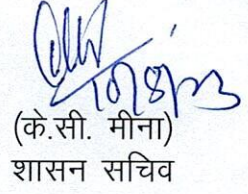 (के.सी. मीना)
शासन सचिव